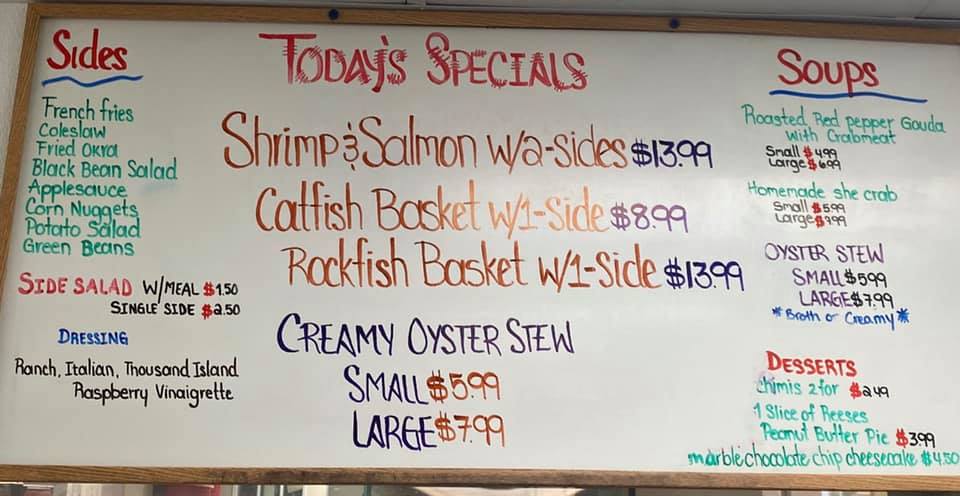 Sides
French fries
Coleslaw
Fried Okra
Black Bean Salad
Applesauce
Corn Nuggets
Potato Salad
Green Beans
SIDE SALAD W/MEAL $1.50
SINGLE SIDE $2.50
DRESSING
Ranch, Italian, Thousand Island
Raspberry Vinaigrette
TODAY'S SPECIALS
Shrimp & Salmon w/2-sides $13.99
Catfish Basket w/1-Side $8.99
Rockfish Basket w/1-Side $13.99
CREAMY OYSTER STEW
SMALL $5.99
LARGE $7.99
Soups
Roasted Red pepper Gouda
with Crabmeat
Small $4.99
Large $6.99
Homemade she crab
Small $5.99
Large
OYSTER STEW
SMALL $5.99
LARGE $7.99
*Broth or Creamy*
DESSERTS
Chimis 2 for $2.49
1 Slice of Reeses
Peanut Butter Pie $3.99
marble chocolate chip cheesecake $4.50